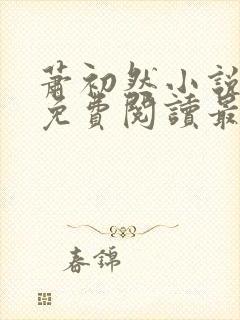 蕭初然小說
免費閱讀最
春錦